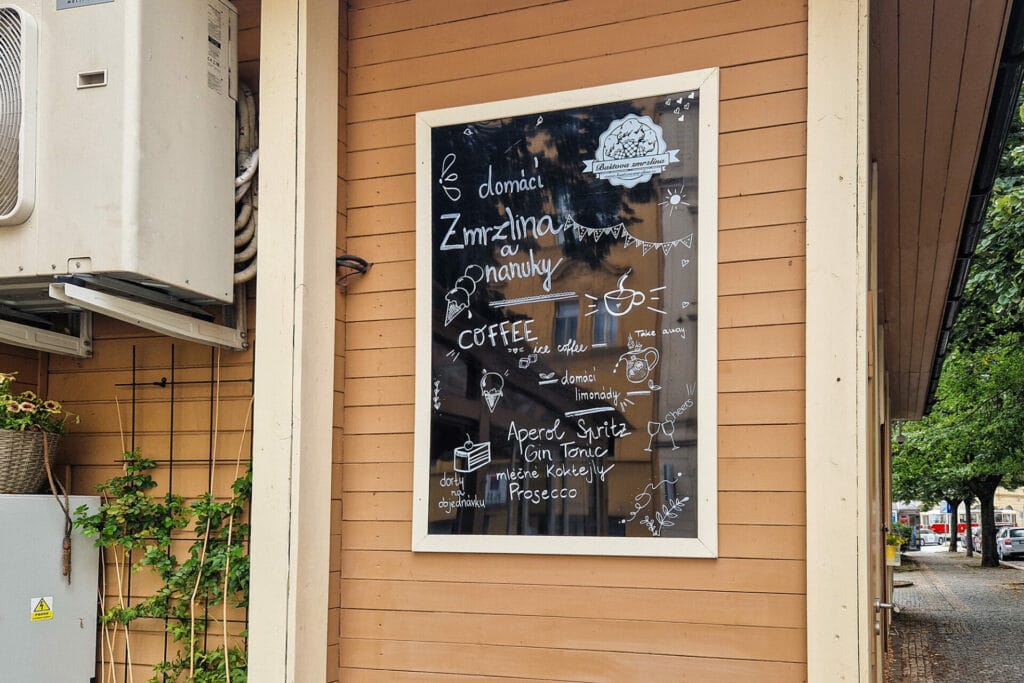 Baštova zmrzlina
domácí
Zmrzlina
a
nanuky
COFFEE
ice coffee
Take away
domácí
limonády
Cheers
Aperol Spritz
Gin Tonic
mléčné Koktejly
Prosecco
dorty
na
objednávku